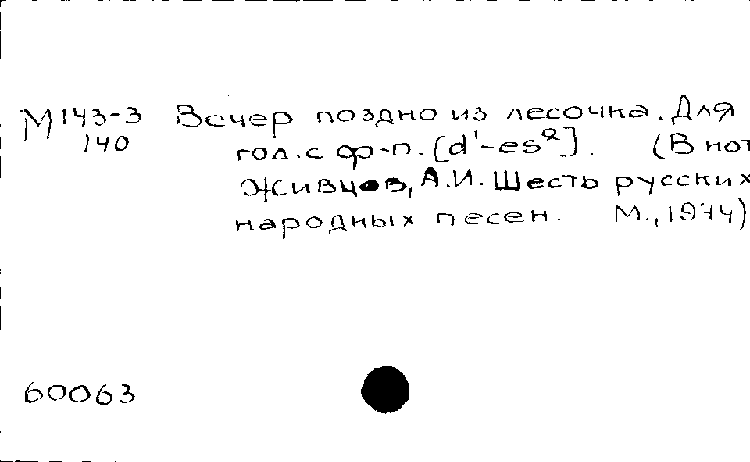 М143-3 Вечер поздно из лесочка. Для
140 гол. с ф-п. [d¹-es²]. (В нот
Живцов, А.И. Шесть русских
народных песен. М., 1944)
60063